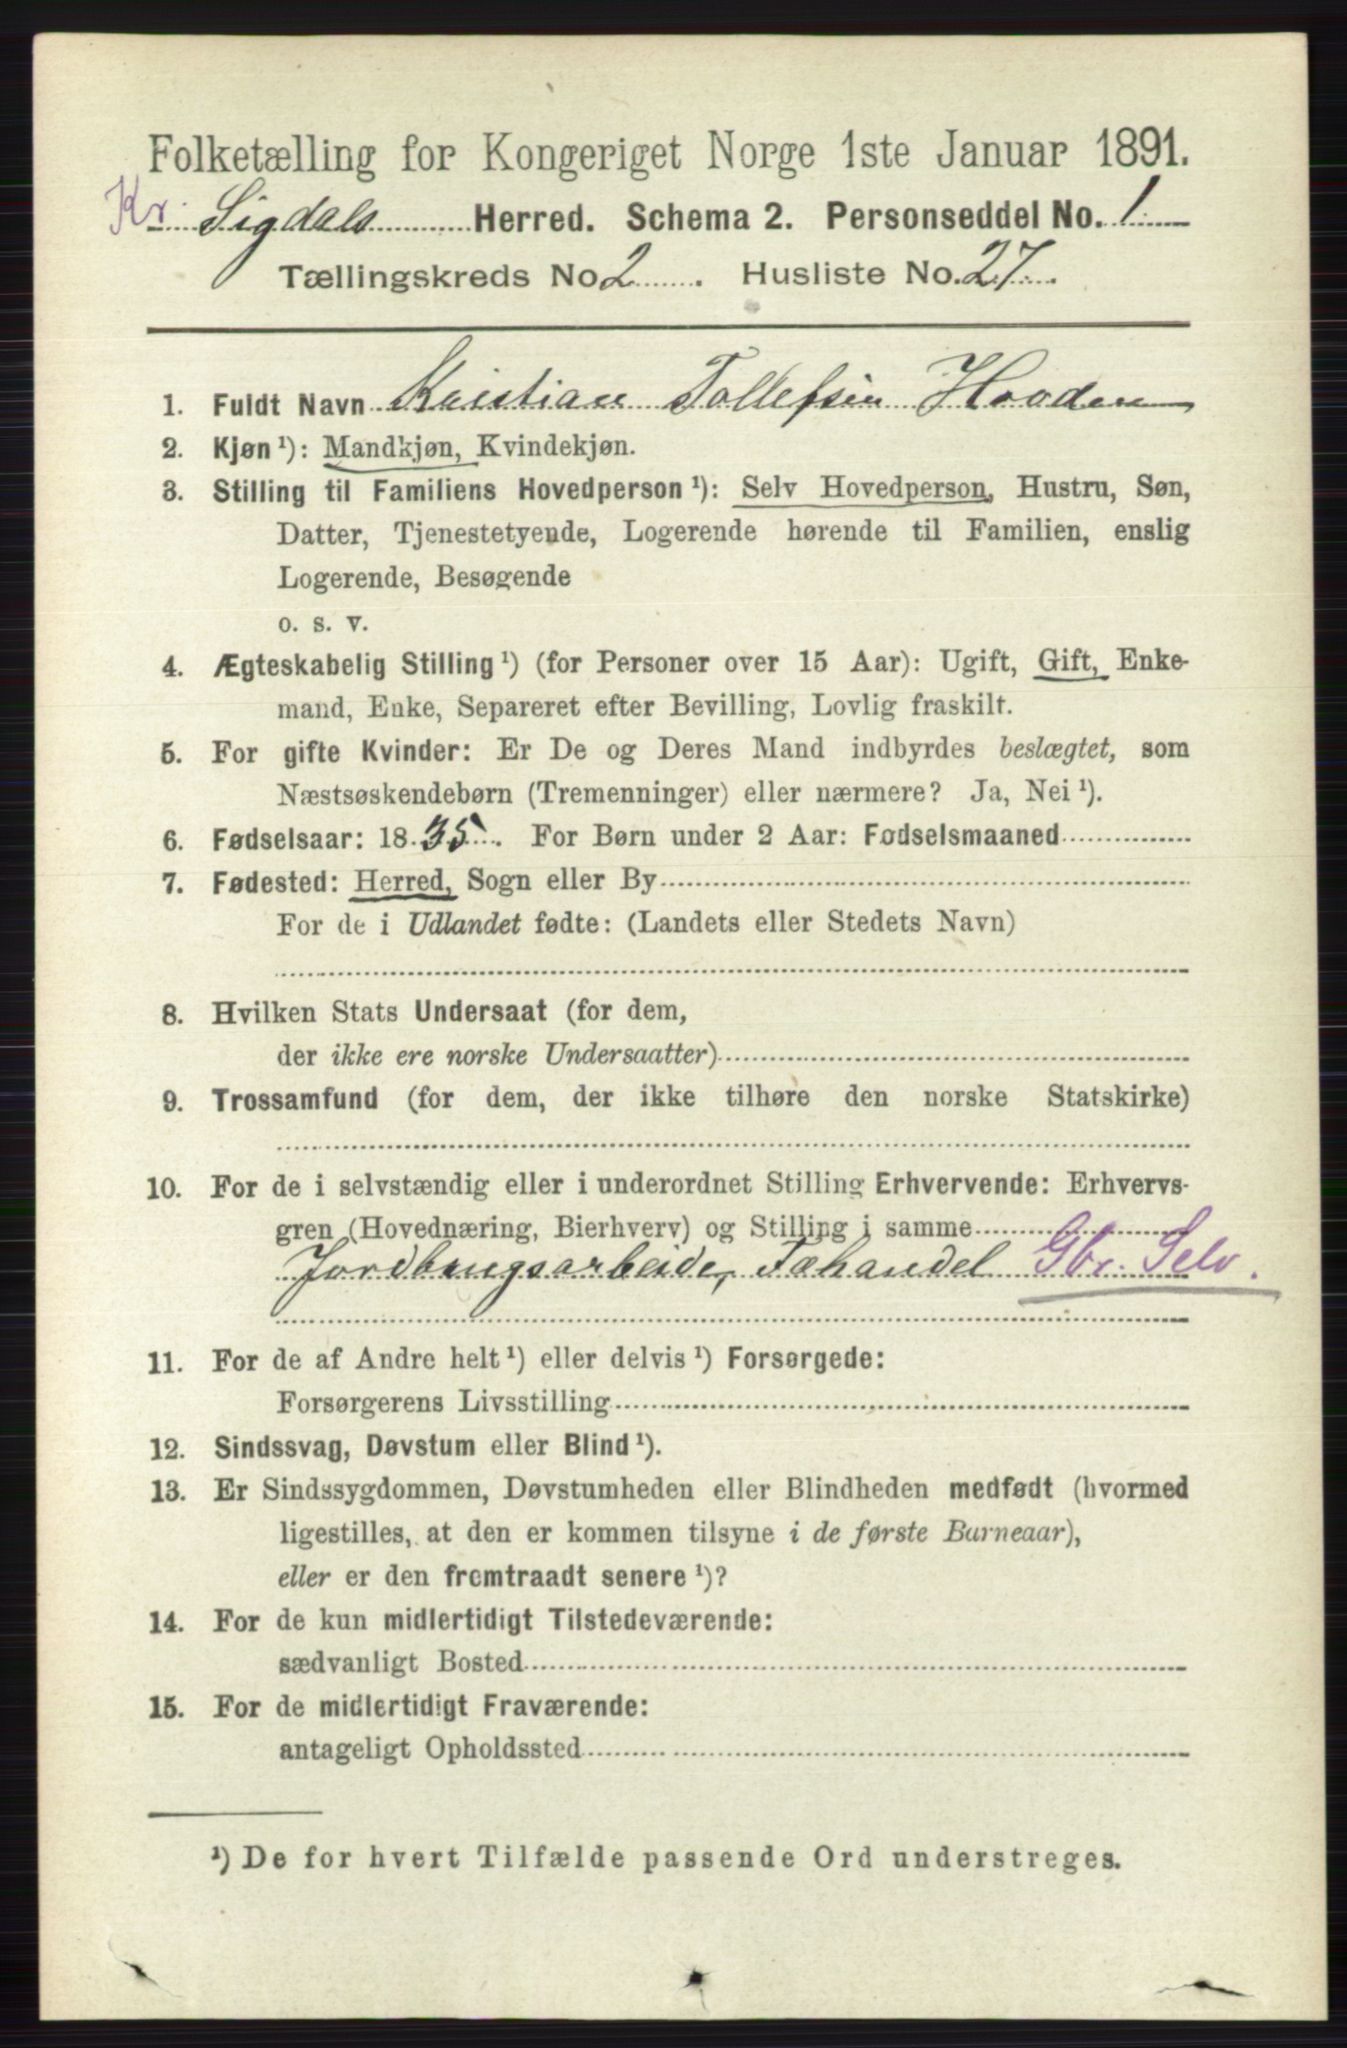 Folketælling for Kongeriget Norge 1ste Januar 1891.
Kr. Sigdals Herred. Schema 2. Personseddel No. 1
Tællingskreds No. 2. Husliste No. 27.
1. Fuldt Navn Kristian Tollefsen Hovden
2. Kjøn ¹): Mandkjøn, Kvindekjøn.
3. Stilling til Familiens Hovedperson ¹): Selv Hovedperson, Hustru, Søn,
Datter, Tjenestetyende, Logerende hørende til Familien, enslig
Logerende, Besøgende
o. s. v.
4. Ægteskabelig Stilling ¹) (for Personer over 15 Aar): Ugift, Gift, Enke-
mand, Enke, Separeret efter Bevilling, Lovlig fraskilt.
5. For gifte Kvinder: Er De og Deres Mand indbyrdes beslægtet, som
Næstsøskendebørn (Tremenninger) eller nærmere? Ja, Nei ¹).
6. Fødselsaar: 1835. For Børn under 2 Aar: Fødselsmaaned
7. Fødested: Herred, Sogn eller By
For de i Udlandet fødte: (Landets eller Stedets Navn)
8. Hvilken Stats Undersaat (for dem,
der ikke ere norske Undersaatter)
9. Trossamfund (for dem, der ikke tilhøre den norske Statskirke)
10. For de i selvstændig eller i underordnet Stilling Erhvervende: Erhvervs-
gren (Hovednæring, Bierhverv) og Stilling i samme
Jordbrugsarbeide, Fæhandel Gbr. Selv.
11. For de af Andre helt ¹) eller delvis ¹) Forsørgede:
Forsørgerens Livsstilling
12. Sindssvag, Døvstum eller Blind ¹).
13. Er Sindssygdommen, Døvstumheden eller Blindheden medfødt (hvormed
ligestilles, at den er kommen tilsyne i de første Barneaar),
eller er den fremtraadt senere ¹)?
14. For de kun midlertidigt Tilstedeværende:
sædvanligt Bosted
15. For de midlertidigt Fraværende:
antageligt Opholdssted
¹) De for hvert Tilfælde passende Ord understreges.